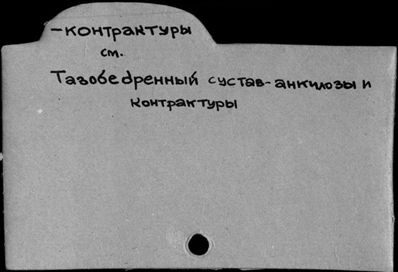 -контрактуры
см.
Тазобедренный сустав-анкилозы и
контрактуры